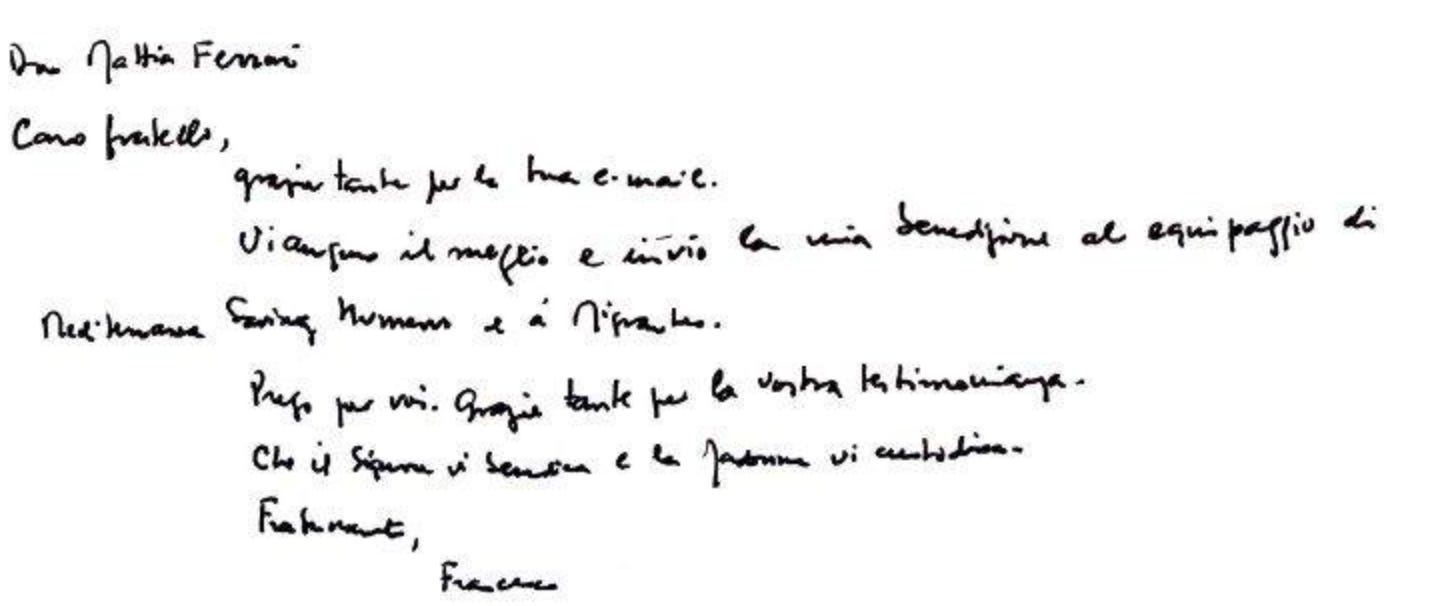 Don Mattia Ferrari
Caro fratello,
grazie tante per la tua e-mail.
Vi auguro il meglio e invio la mia benedizione al equipaggio di
Mediterranea Saving Humans e a Migrantes.
Prego per voi. Grazie tante per la vostra testimonianza.
Che il Signore vi benedica e la Madonna vi custodisca.
Fraternamente,
Francesco